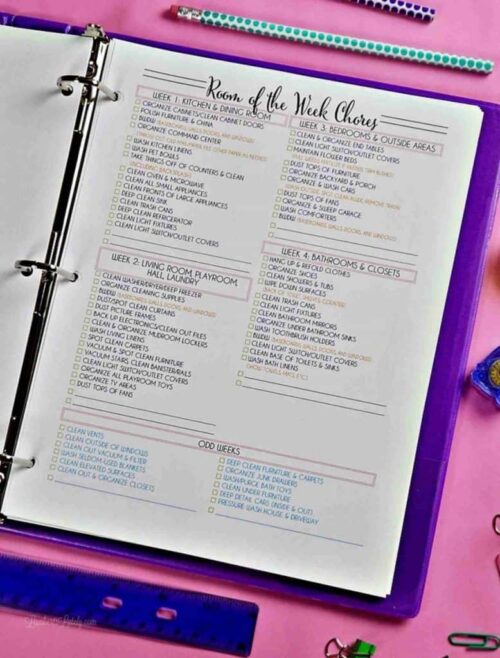 Room of the Week Chores
WEEK 1: KITCHEN & DINING ROOM
ORGANIZE CABINETS/CLEAN CABINET DOORS
POLISH FURNITURE & CHINA
BWDW (BASEBOARDS, WALLS, DOORS, AND WINDOWS)
ORGANIZE COMMAND CENTER
WASH KITCHEN LINENS
WASH PET BOWLS
TAKE THINGS OFF OF COUNTERS & CLEAN
(INCLUDING BACKSPLASH)
CLEAN OVEN & MICROWAVE
CLEAN ALL SMALL APPLIANCES
CLEAN FRONTS OF LARGE APPLIANCES
DEEP CLEAN SINK
CLEAN TRASH CANS
DEEP CLEAN REFRIGERATOR
CLEAN LIGHT FIXTURES
CLEAN LIGHT SWITCH/OUTLET COVERS
WEEK 2: LIVING ROOM, PLAYROOM,
HALL, LAUNDRY
CLEAN WASHER/DRYER/DEEP FREEZER
ORGANIZE CLEANING SUPPLIES
BWDW (BASEBOARDS, WALLS, DOORS, AND WINDOWS)
DUST/SPOT CLEAN CURTAINS
DUST PICTURE FRAMES
BACK UP ELECTRONICS/CLEAN OUT FILES
CLEAN & ORGANIZE MUDROOM LOCKERS
WASH ENTRY LINENS
SPOT CLEAN CARPETS
VACUUM & SPOT CLEAN FURNITURE
VACUUM STAIRS, CLEAN BANISTER/RAILS
CLEAN LIGHT SWITCH/OUTLET COVERS
ORGANIZE ALL PLAYROOM TOYS
ORGANIZE TV AREAS
DUST TOPS OF FANS
WEEK 3: BEDROOMS & OUTSIDE AREAS
CLEAN & ORGANIZE END TABLES
CLEAN LIGHT SWITCH/OUTLET COVERS
MAINTAIN FLOWER BEDS
DUST TOPS OF FURNITURE
ORGANIZE BACKYARD & PORCH
ORGANIZE & WASH CARS
DUST TOPS OF FANS
ORGANIZE & SWEEP GARAGE
WASH COMFORTERS
BWDW (BASEBOARDS, WALLS, DOORS, AND WINDOWS)
WEEK 4: BATHROOMS & CLOSETS
HANG UP & REFOLD CLOTHES
ORGANIZE SHOES
CLEAN SHOWERS & TUBS
WIPE DOWN SURFACES
CLEAN TRASH CANS
CLEAN LIGHT FIXTURES
CLEAN BATHROOM MIRRORS
ORGANIZE UNDER BATHROOM SINKS
WASH TOOTHBRUSH HOLDERS
BWDW (BASEBOARDS, WALLS, DOORS, AND WINDOWS)
CLEAN LIGHT SWITCH/OUTLET COVERS
CLEAN BASE OF TOILETS & SINKS
WASH BATH LINENS
ODD WEEKS
CLEAN VENTS
CLEAN OUTSIDE OF WINDOWS
CLEAN OUT VACUUM & FILTER
WASH SELDOM-USED BLANKETS
CLEAN ELEVATED SURFACES
CLEAN OUT & ORGANIZE CLOSETS
DEEP CLEAN FURNITURE & CARPETS
ORGANIZE JUNK DRAWERS
WASH/PURGE BATH TOYS
CLEAN UNDER FURNITURE
DEEP DETAIL CARS (INSIDE & OUT)
PRESSURE WASH HOUSE & DRIVEWAY